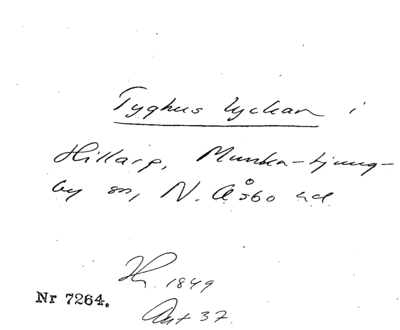 Tyghus lyckan i
Hillarp, Munka-Ljung-
by sn, N. Åsbo hd.
1849
Nr 7264.
Akt 37.